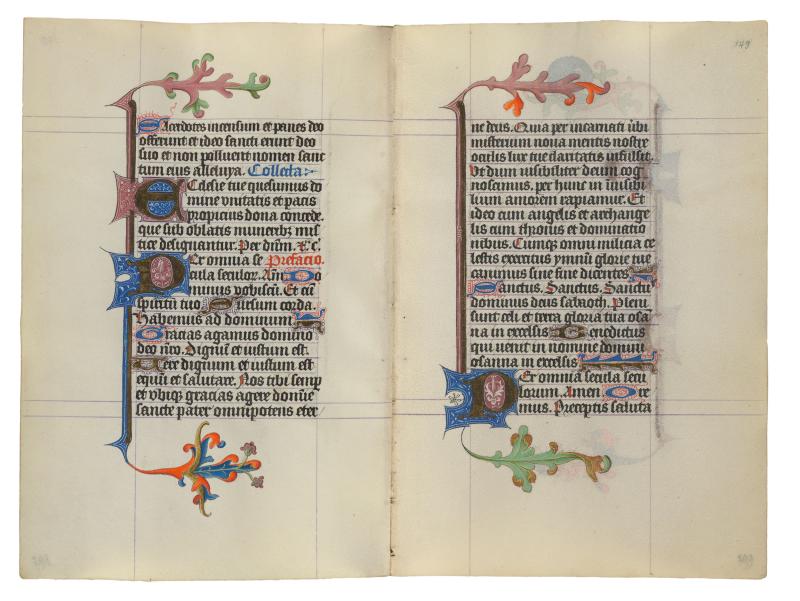 Sacerdotes incensum et panes deo
offerunt et ideo sancti erunt deo
suo et non polluent nomen sanc
tum eius alleluya. Collecta
Ecclesie tue quesumus do
mine vnitatis et pacis
propicius dona concede.
que sub oblatis muneribz mis
tice designantur. Per dn̄m. xc̄.
Per omnia se Prefacio.
cula seculoꝝ. Am̄ Do
minus vobiscū. Et cū
spiritu tuo Sursum corda.
Habemus ad dominum
Gracias agamus domino
deo nr̄o. Dignū et iustum est.
Vere dignum et iustum est
equū et salutare. Nos tibi semp
et vbiqꝫ gracias agere domīe
sancte pater omnipotens eter
149
ne deus. Quia per incarnati ūbi
misterium noua mentis nostre
oculis lux tue claritatis infulsit.
Vt dum visibiliter deum cog
noscimus. per hunc in inuisibi
lium amorem rapiamur. Et
ideo cum angelis et archange
lis cum thronis et dominatio
nibus. Cumqꝫ omni milicia ce
lestis exercitus ymnū glorie tue
canimus sine fine dicentes
Sanctus. Sanctus. Sanctus
dominus deus sabaoth. Pleni
sunt celi et terra gloria tua osa
na in excelsis Benedictus
qui uenit in nomine domini
osanna in excelsis
Per omnia secula secu
lorum. Amen Ore
mus. Preceptis saluta